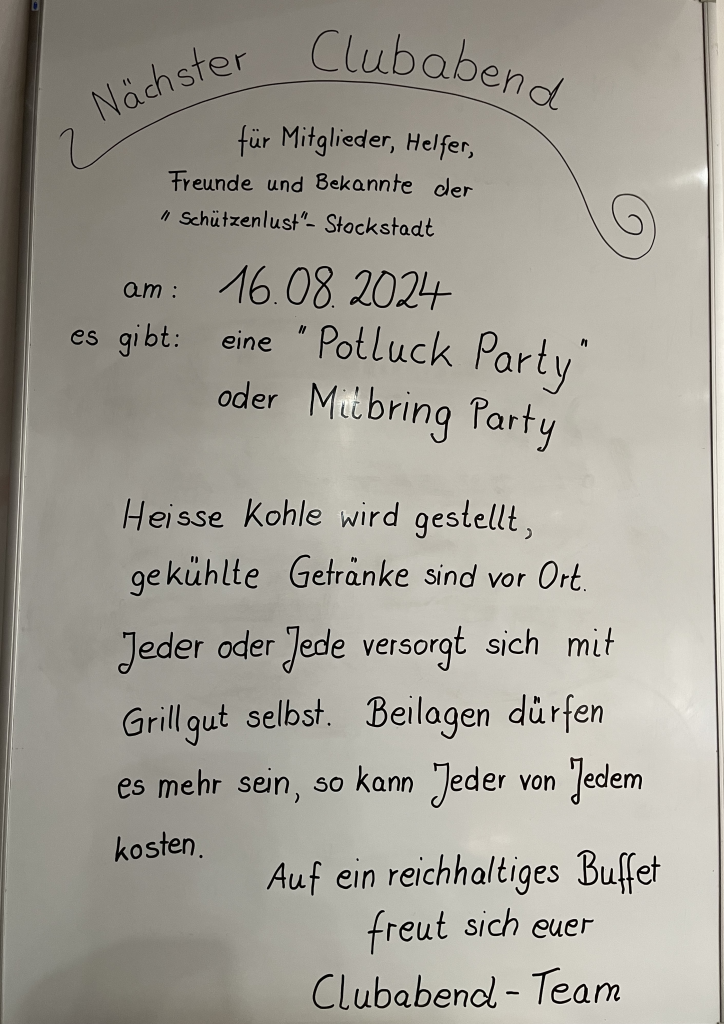 Nächster Clubabend
für Mitglieder, Helfer,
Freunde und Bekannte der
"Schützenlust"- Stockstadt
am: 16.08.2024
es gibt: eine "Potluck Party"
oder Mitbring Party
Heisse Kohle wird gestellt,
gekühlte Getränke sind vor Ort.
Jeder oder Jede versorgt sich mit
Grillgut selbst. Beilagen dürfen
es mehr sein, so kann Jeder von Jedem
kosten.
Auf ein reichhaltiges Buffet
freut sich euer
Clubabend - Team